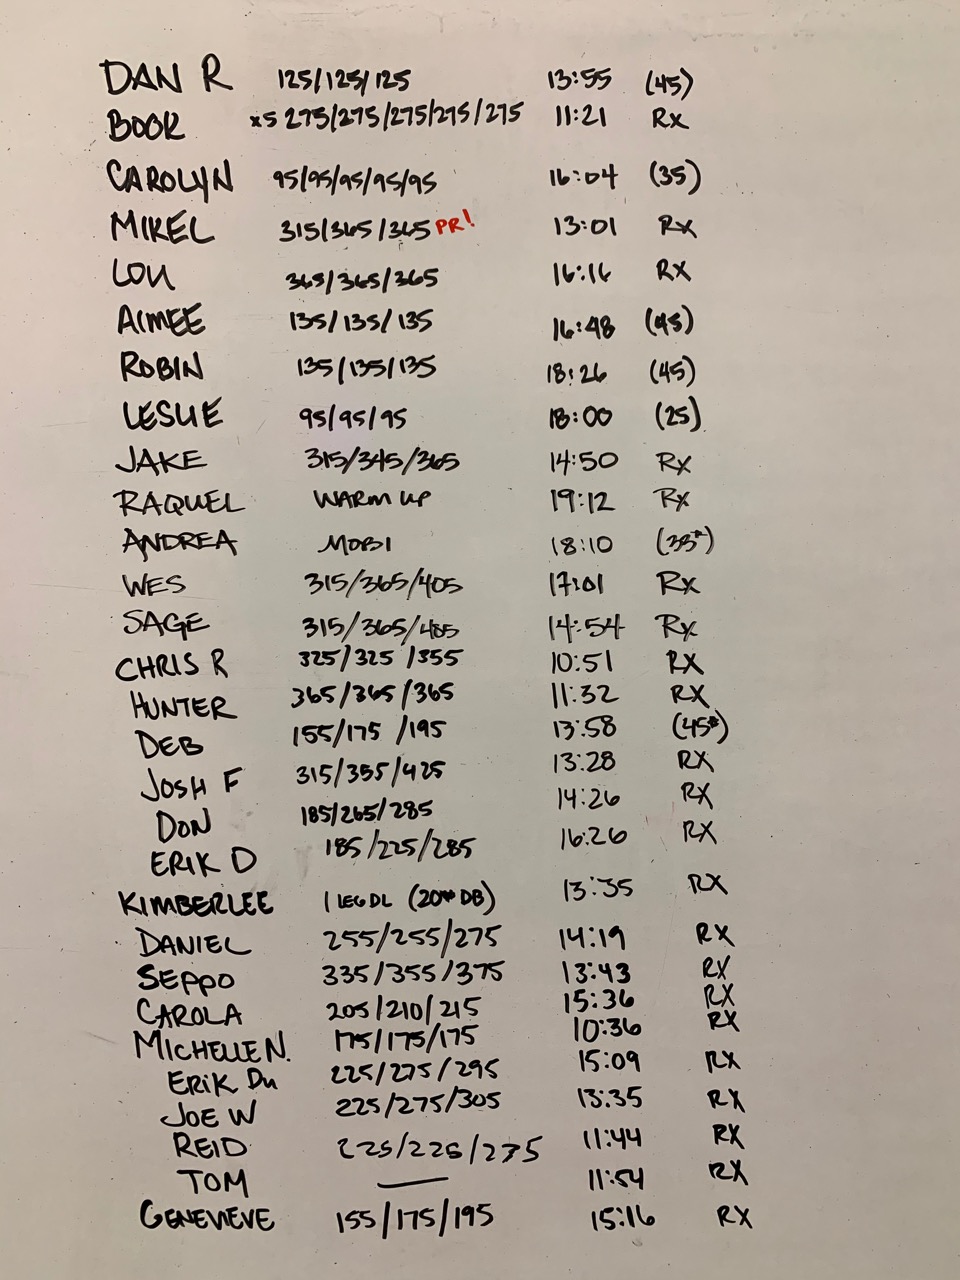 DAN R 125/125/125 13:55 (45)
BOOK x5 275/275/275/275/275 11:21 RX
CAROLYN 95/95/95/95/95 16:04 (35)
MIKEL 315/365/365 PR! 13:01 RX
LOU 365/365/365 16:16 RX
AIMEE 135/135/135 16:48 (45)
ROBIN 135/135/135 18:26 (45)
LESLIE 95/95/95 18:00 (25)
JAKE 315/345/365 14:50 Rx
RAQUEL WARM UP 19:12 Rx
ANDREA MOBI 18:10 (35#)
WES 315/365/405 17:01 Rx
SAGE 315/365/485 14:54 Rx
CHRIS R 325/325/355 10:51 RX
HUNTER 365/365/365 11:32 RX
DEB 155/175/195 13:58 (45#)
JOSH F 315/355/425 13:28 RX
DON 185/265/285 14:26 RX
ERIK D 185/225/285 16:26 RX
KIMBERLEE 1 LEG DL (20# DB) 13:35 RX
DANIEL 255/255/275 14:19 RX
SEPPO 335/355/375 13:43 RX
CAROLA 205/210/215 15:36 RX
MICHELLE N. 175/175/175 10:36 RX
ERIK Du 225/275/295 15:09 RX
JOE W 225/275/305 13:35 RX
REID 225/225/275 11:44 RX
TOM — 11:54 RX
GENEVIEVE 155/175/195 15:16 RX